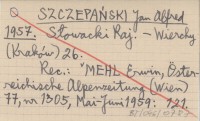 SZCZEPAŃSKI Jan Alfred
1957. Słowacki Raj. - Wierchy
(Kraków) 26.
Rec.: MEHL Erwin, Öster-
reichische Alpenzeitung (Wien)
77, nr 1305, Mai-Juni 1959: 121.